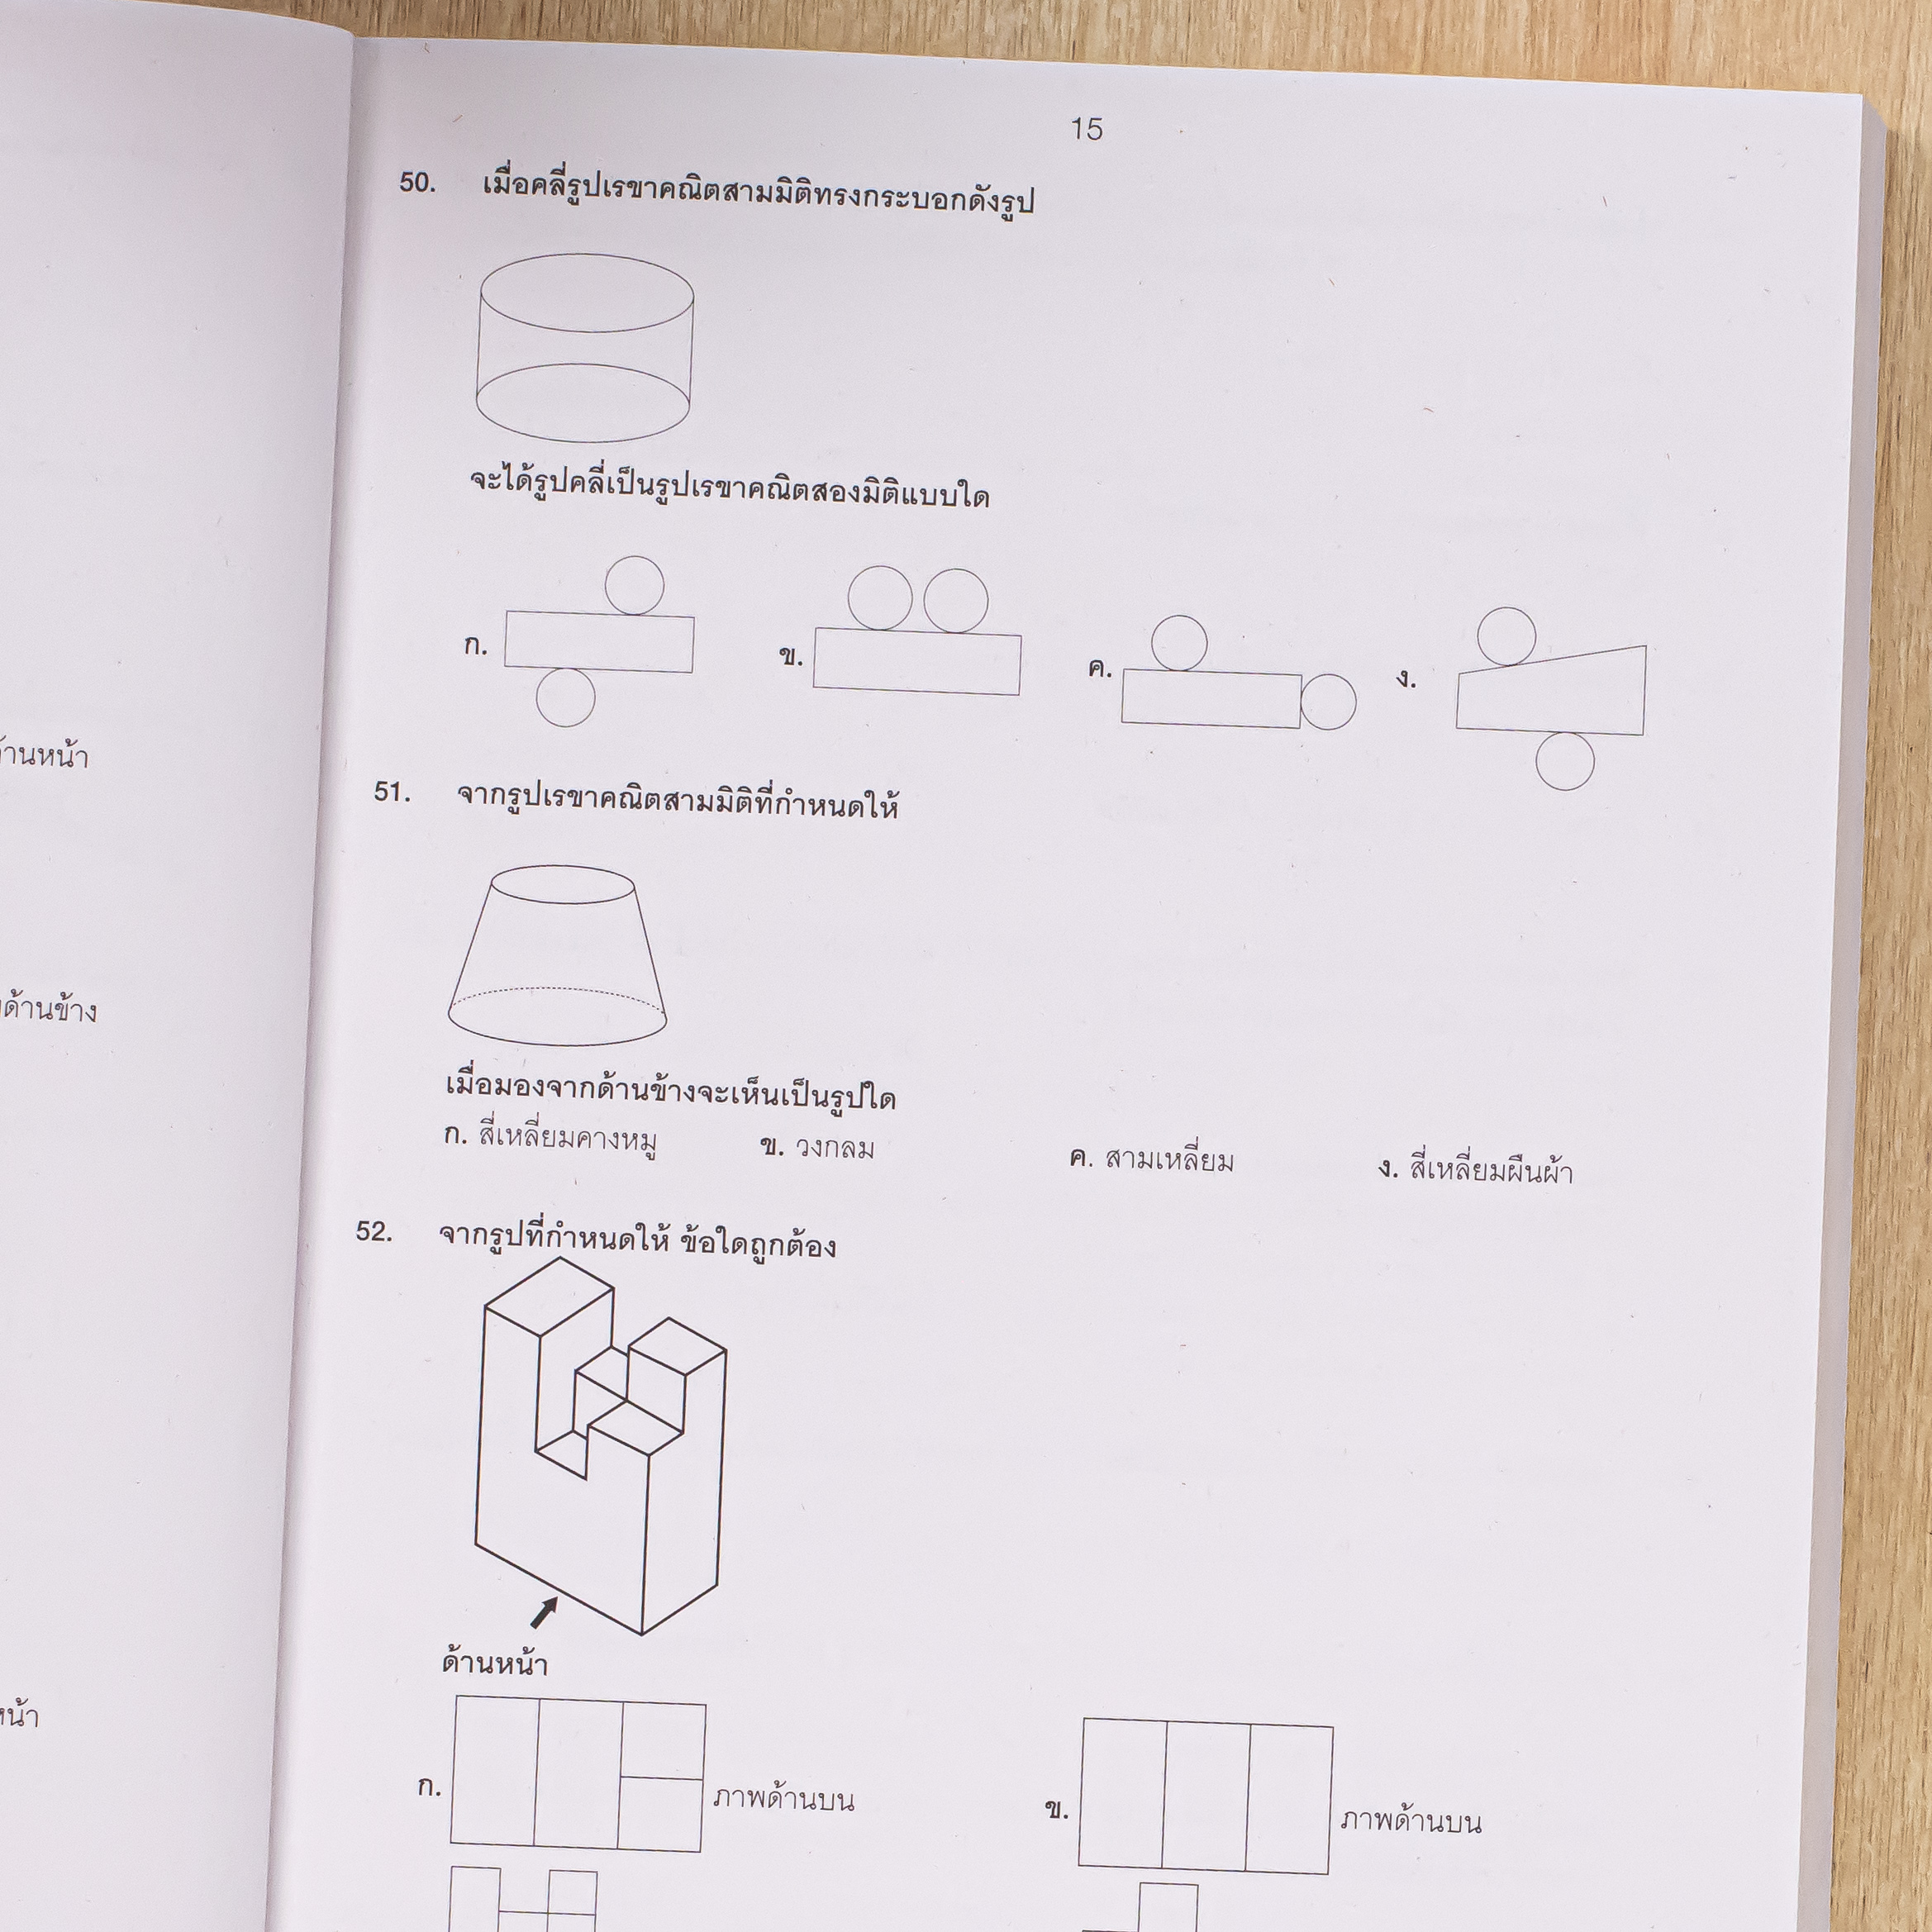 15
50. เมื่อคลี่รูปเรขาคณิตสามมิติทรงกระบอกดังรูป
จะได้รูปคลี่เป็นรูปเรขาคณิตสองมิติแบบใด
ก. ข. ค. ง.
51. จากรูปเรขาคณิตสามมิติที่กำหนดให้
เมื่อมองจากด้านข้างจะเห็นเป็นรูปใด
ก. สี่เหลี่ยมคางหมู ข. วงกลม ค. สามเหลี่ยม ง. สี่เหลี่ยมผืนผ้า
52. จากรูปที่กำหนดให้ ข้อใดถูกต้อง
ด้านหน้า
ก. ภาพด้านบน ข. ภาพด้านบน
ด้านข้าง